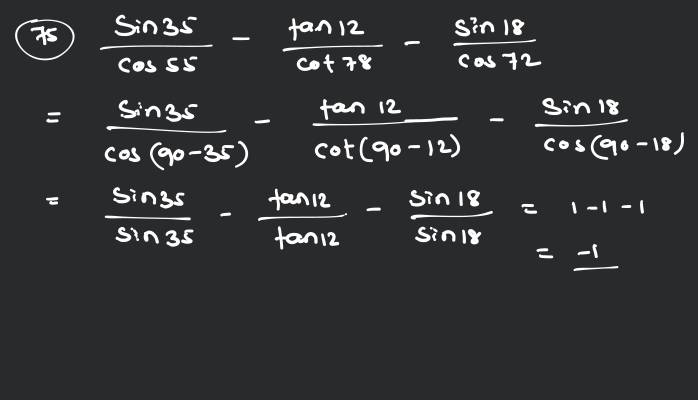 75 Sin35/cos 55 - tan 12/cot 78 - Sin 18/cos 72
= Sin35/cos (90-35) - tan 12/cot(90-12) - Sin 18/cos(90-18)
= Sin35/Sin 35 - tan12/tan12 - Sin 18/Sin18 = 1-1-1
= -1